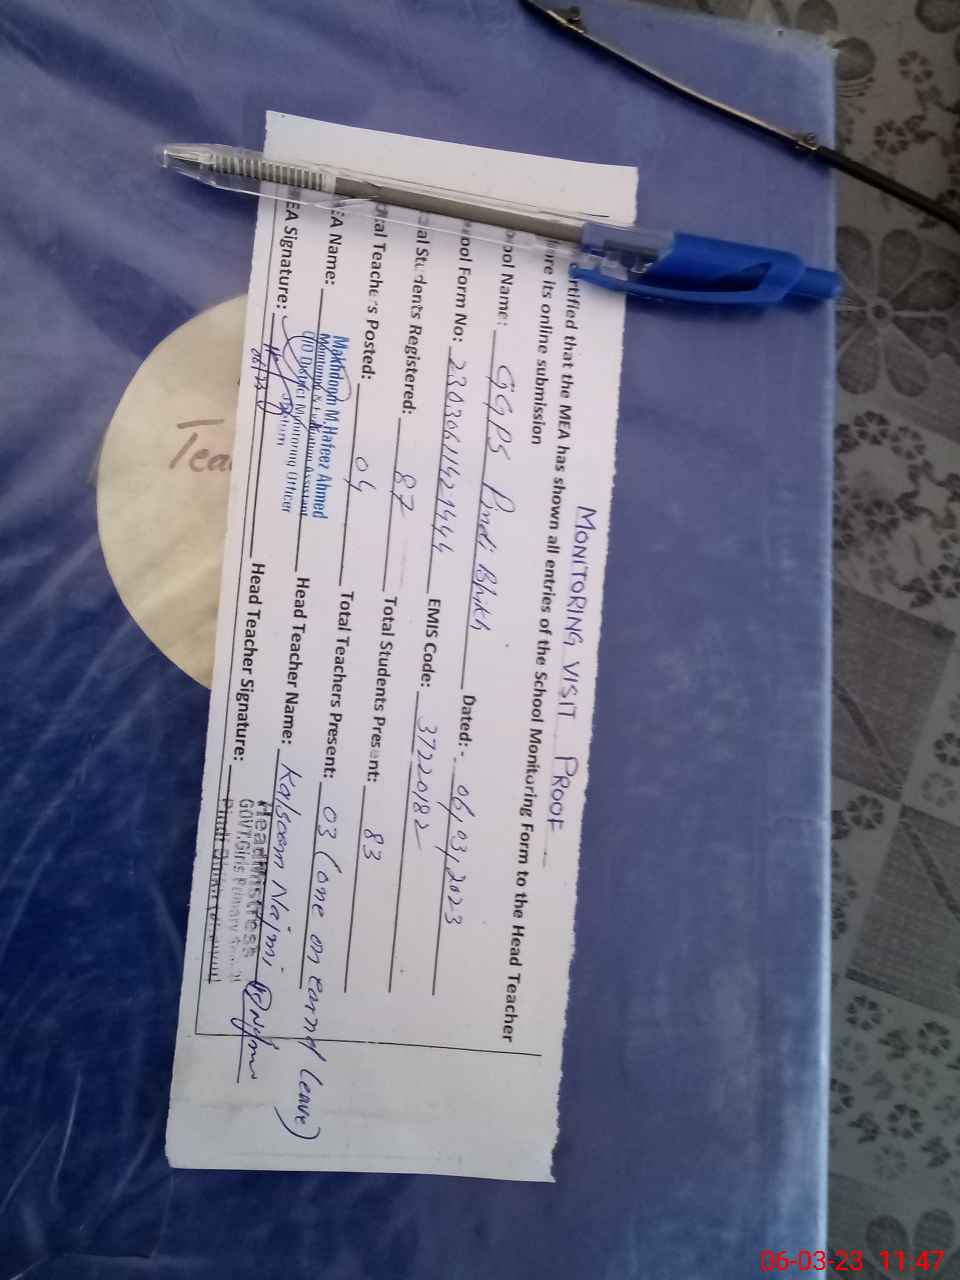 MONITORING VISIT PROOF
rtified that the MEA has shown all entries of the School Monitoring Form to the Head Teacher
ore its online submission
ool Name: GGPS Pindi Bhikh Dated:- 06,03,2023
ool Form No: 23030611421444 EMIS Code: 37220182
al Students Registered: 87 Total Students Present: 83
tal Teachers Posted: 04 Total Teachers Present: 03 (one on earnd leave)
EA Name: Makhdoom M.Hafeez Ahmed Head Teacher Name: Kalsoom Najmi
Monitoring & Evaluation Assistant
O/O District Monitoring Officer
EA Signature: Head Teacher Signature:
Headmistress
GOVT.Girls Primary
Tea
06-03-23 11:47